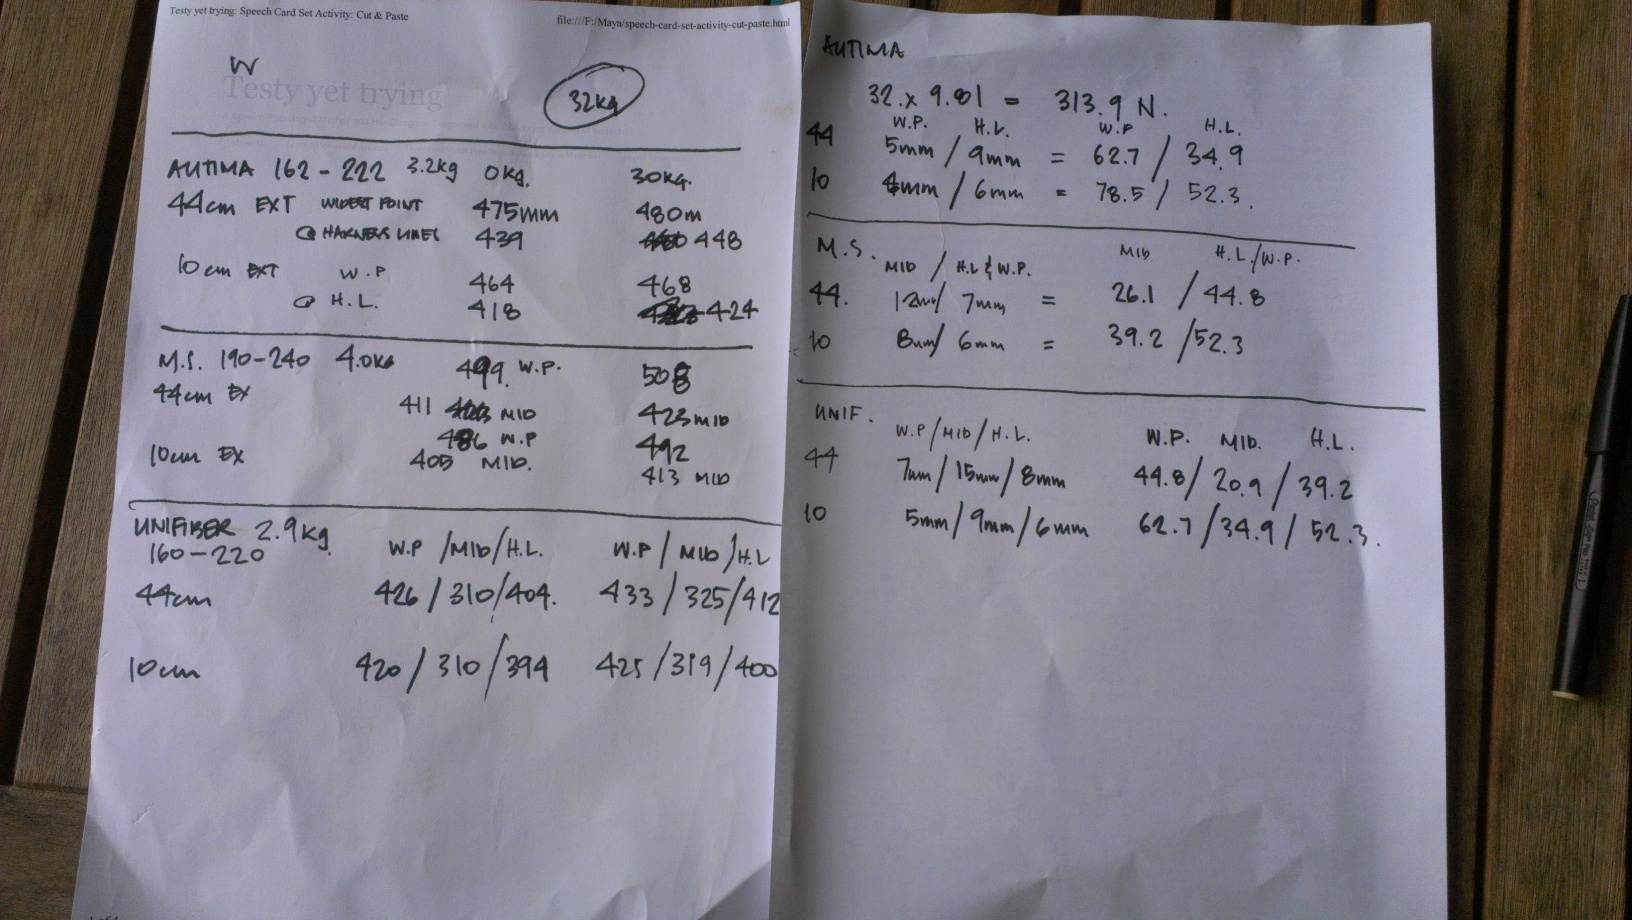 Testy yet trying: Speech Card Set Activity: Cut & Paste
file:///F:/Maya/speech-card-set-activity-cut-paste.html
W
Testy yet trying
32kg
AUTIMA 162-222 3.2kg 0kg. 30KG.
44cm EXT WIDEST POINT 475mm 480m
@ HARNESS LINES 439 448
10cm EXT W.P 464 468
@ H.L. 418 424
M.S. 190-240 4.0KG 499. W.P. 508
44cm EX 411 MID 423 MID
486 W.P 492
10cm EX 405 MID. 413 MID
UNIFIBER 2.9kg.
160-220 W.P/MID/H.L. W.P/MID/H.L
44cm 426/310/404. 433/325/412
10cm 420/310/394 425/319/400
AUTIMA
32.x 9.81 = 313.9 N.
W.P. H.L. W.P H.L.
44 5mm/9mm = 62.7/34.9
10 4mm/6mm = 78.5/52.3.
M.S. MID/H.L & W.P. MID H.L./W.P.
44. 12mm/7mm = 26.1/44.8
10 8mm/6mm = 39.2/52.3
UNIF. W.P/MID/H.L. W.P. MID. H.L.
44 7mm/15mm/8mm 44.8/20.9/39.2
10 5mm/9mm/6mm 62.7/34.9/52.3.